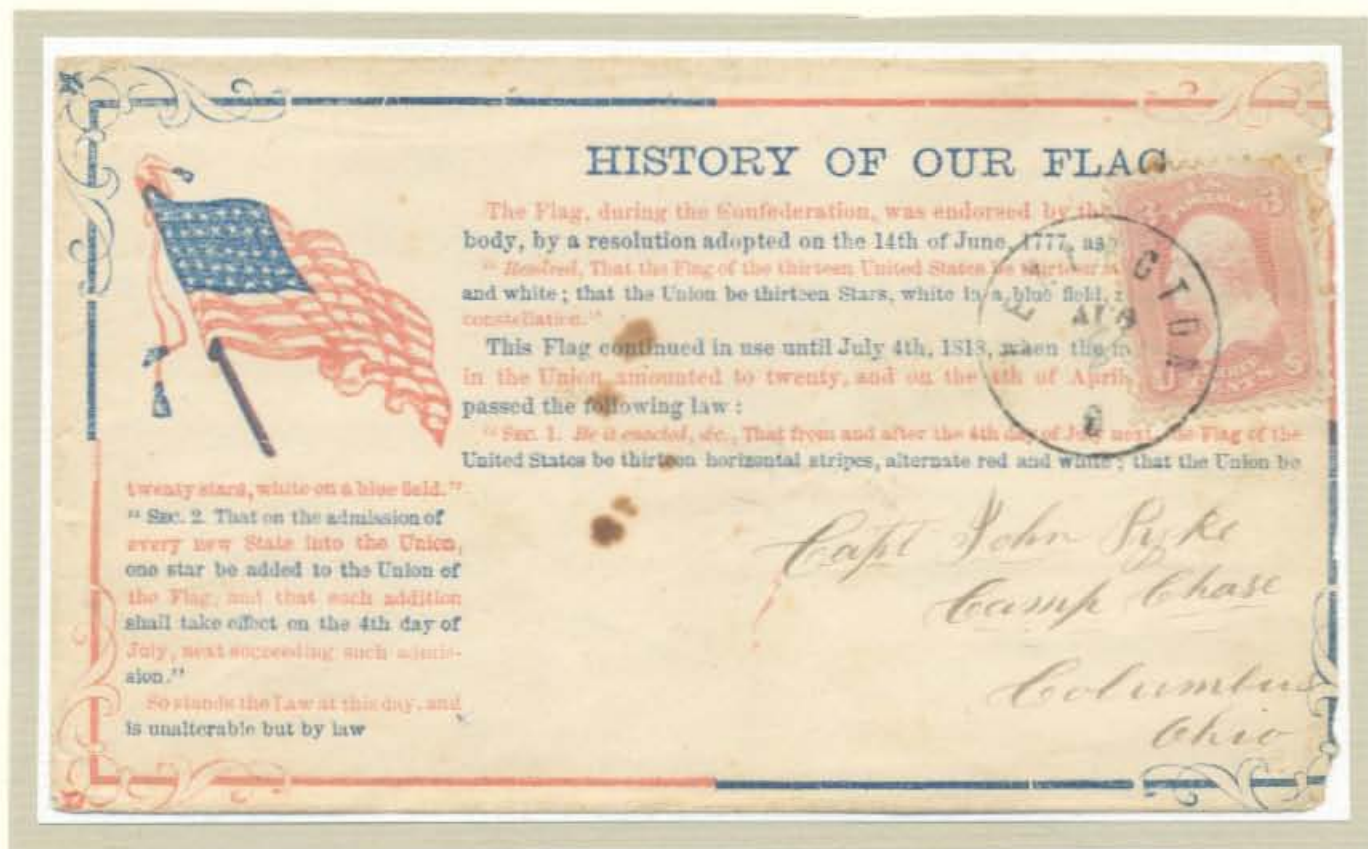 HISTORY OF OUR FLAG
The Flag, during the Confederation, was endorsed by
body, by a resolution adopted on the 14th of June, 1777, as
"Resolved, That the Flag of the thirteen United States be thirteen
and white; that the Union be thirteen Stars, white in a blue field,
constellation."
This Flag continued in use until July 4th, 1818, when the
in the Union amounted to twenty, and on the 4th of April
passed the following law:
"Sec. 1. Be it enacted, &c., That from and after the 4th day of July next, the Flag of the
United States be thirteen horizontal stripes, alternate red and white; that the Union be
twenty stars, white on a blue field."
"Sec. 2. That on the admission of
every new State into the Union,
one star be added to the Union of
the Flag, and that such addition
shall take effect on the 4th day of
July, next succeeding such admis-
sion."
So stands the Law at this day, and
is unalterable but by law
AUG
3 3
CENTS
Capt John
Camp Chase
Columbus
Ohio